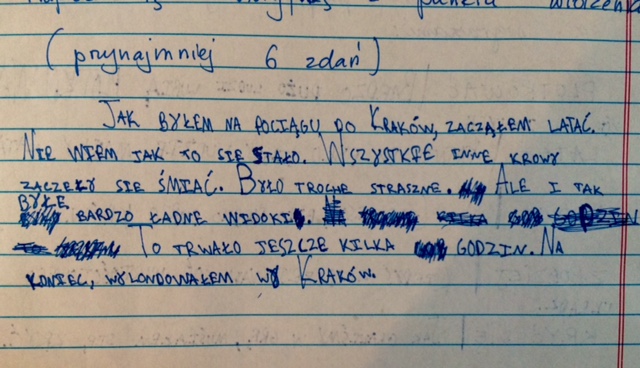 (przynajmniej 6 zdań)
JAK BYŁEM NA POCIĄGU DO KRAKÓW, ZACZĄŁEM LATAĆ.
NIE WIEM JAK TO SIĘ STAŁO. WSZYSTKIE INNE KROWY
ZACZEŁY SIE ŚMIAĆ. BYŁO TROCHE STRASZNE. ALE I TAK
BYŁE
BARDZO ŁADNE WIDOKI.
TO TRWAŁO JESZCZE KILKA GODZIN. NA
KONIEC, WYLONDOWAŁEM W KRAKÓW.